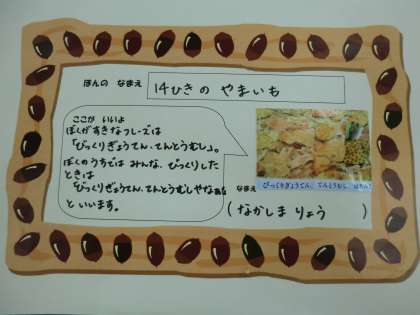 ほんの なまえ 14ひきの やまいも
ここが いいよ
ぼくがすきなフレーズは
「びっくりぎょうてん、てんとうむし」。
ぼくのうちでは みんな、びっくりした
ときは
「びっくりぎょうてん、てんとうむしやなぁ」
といいます。
びっくりぎょうてん、てんとうむし
なまえ
(なかしま りょう)